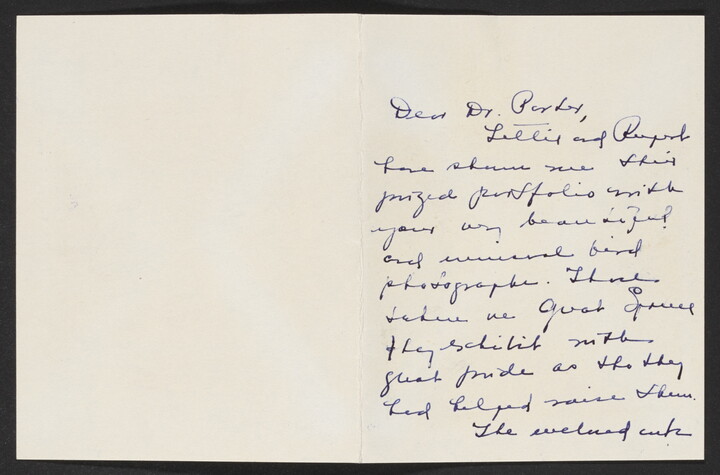 Dear Dr. Porter,
Lettie and Rupert
have shown me their
prized portfolio with
your very beautiful
and unusual bird
photographs. Those
taken on Great Spruce
they exhibit with
great pride as tho they
had helped raise them.
The